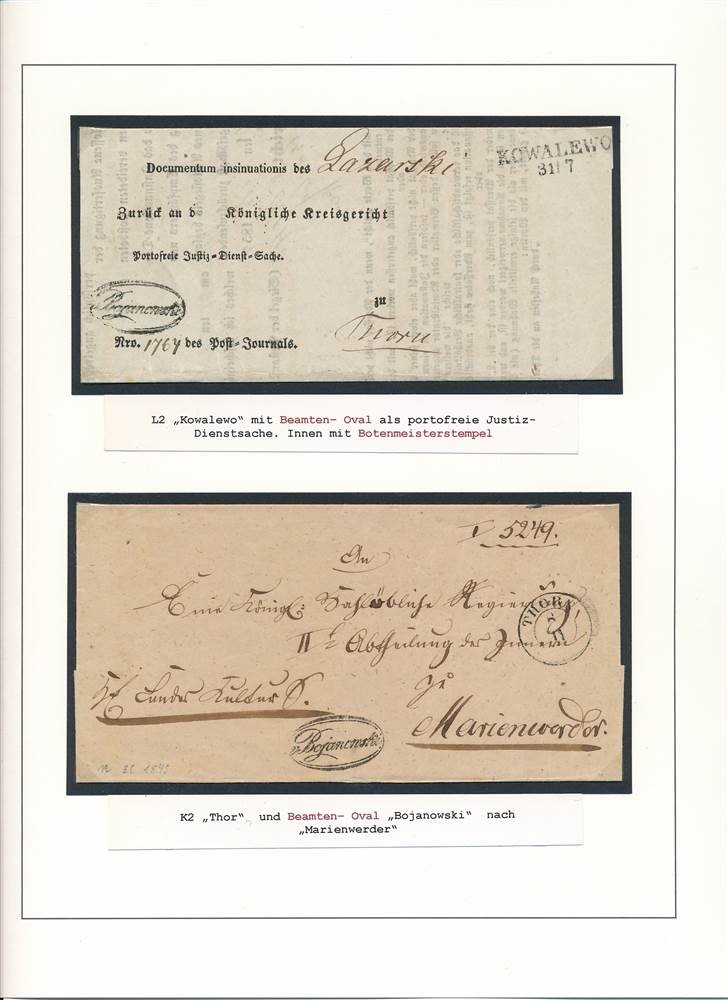 Documentum insinuationis des Lazarski
KOWALEWO
31 7
Zurück an d Königliche Kreisgericht
Portofreie Justiz-Dienst-Sache.
v. Bojanowski
zu
Thorn
Nro. 1764 des Post-Journals.
L2 „Kowalewo“ mit Beamten- Oval als portofreie Justiz-
Dienstsache. Innen mit Botenmeisterstempel
5249.
An
Eine Königl: Hochlöbliche Regier
THORN
II Abtheilung des Innern
Landes Kultur S.
zu
Marienwerder.
v. Bojanowski
K2 „Thor“ und Beamten- Oval „Bojanowski“ nach
„Marienwerder“